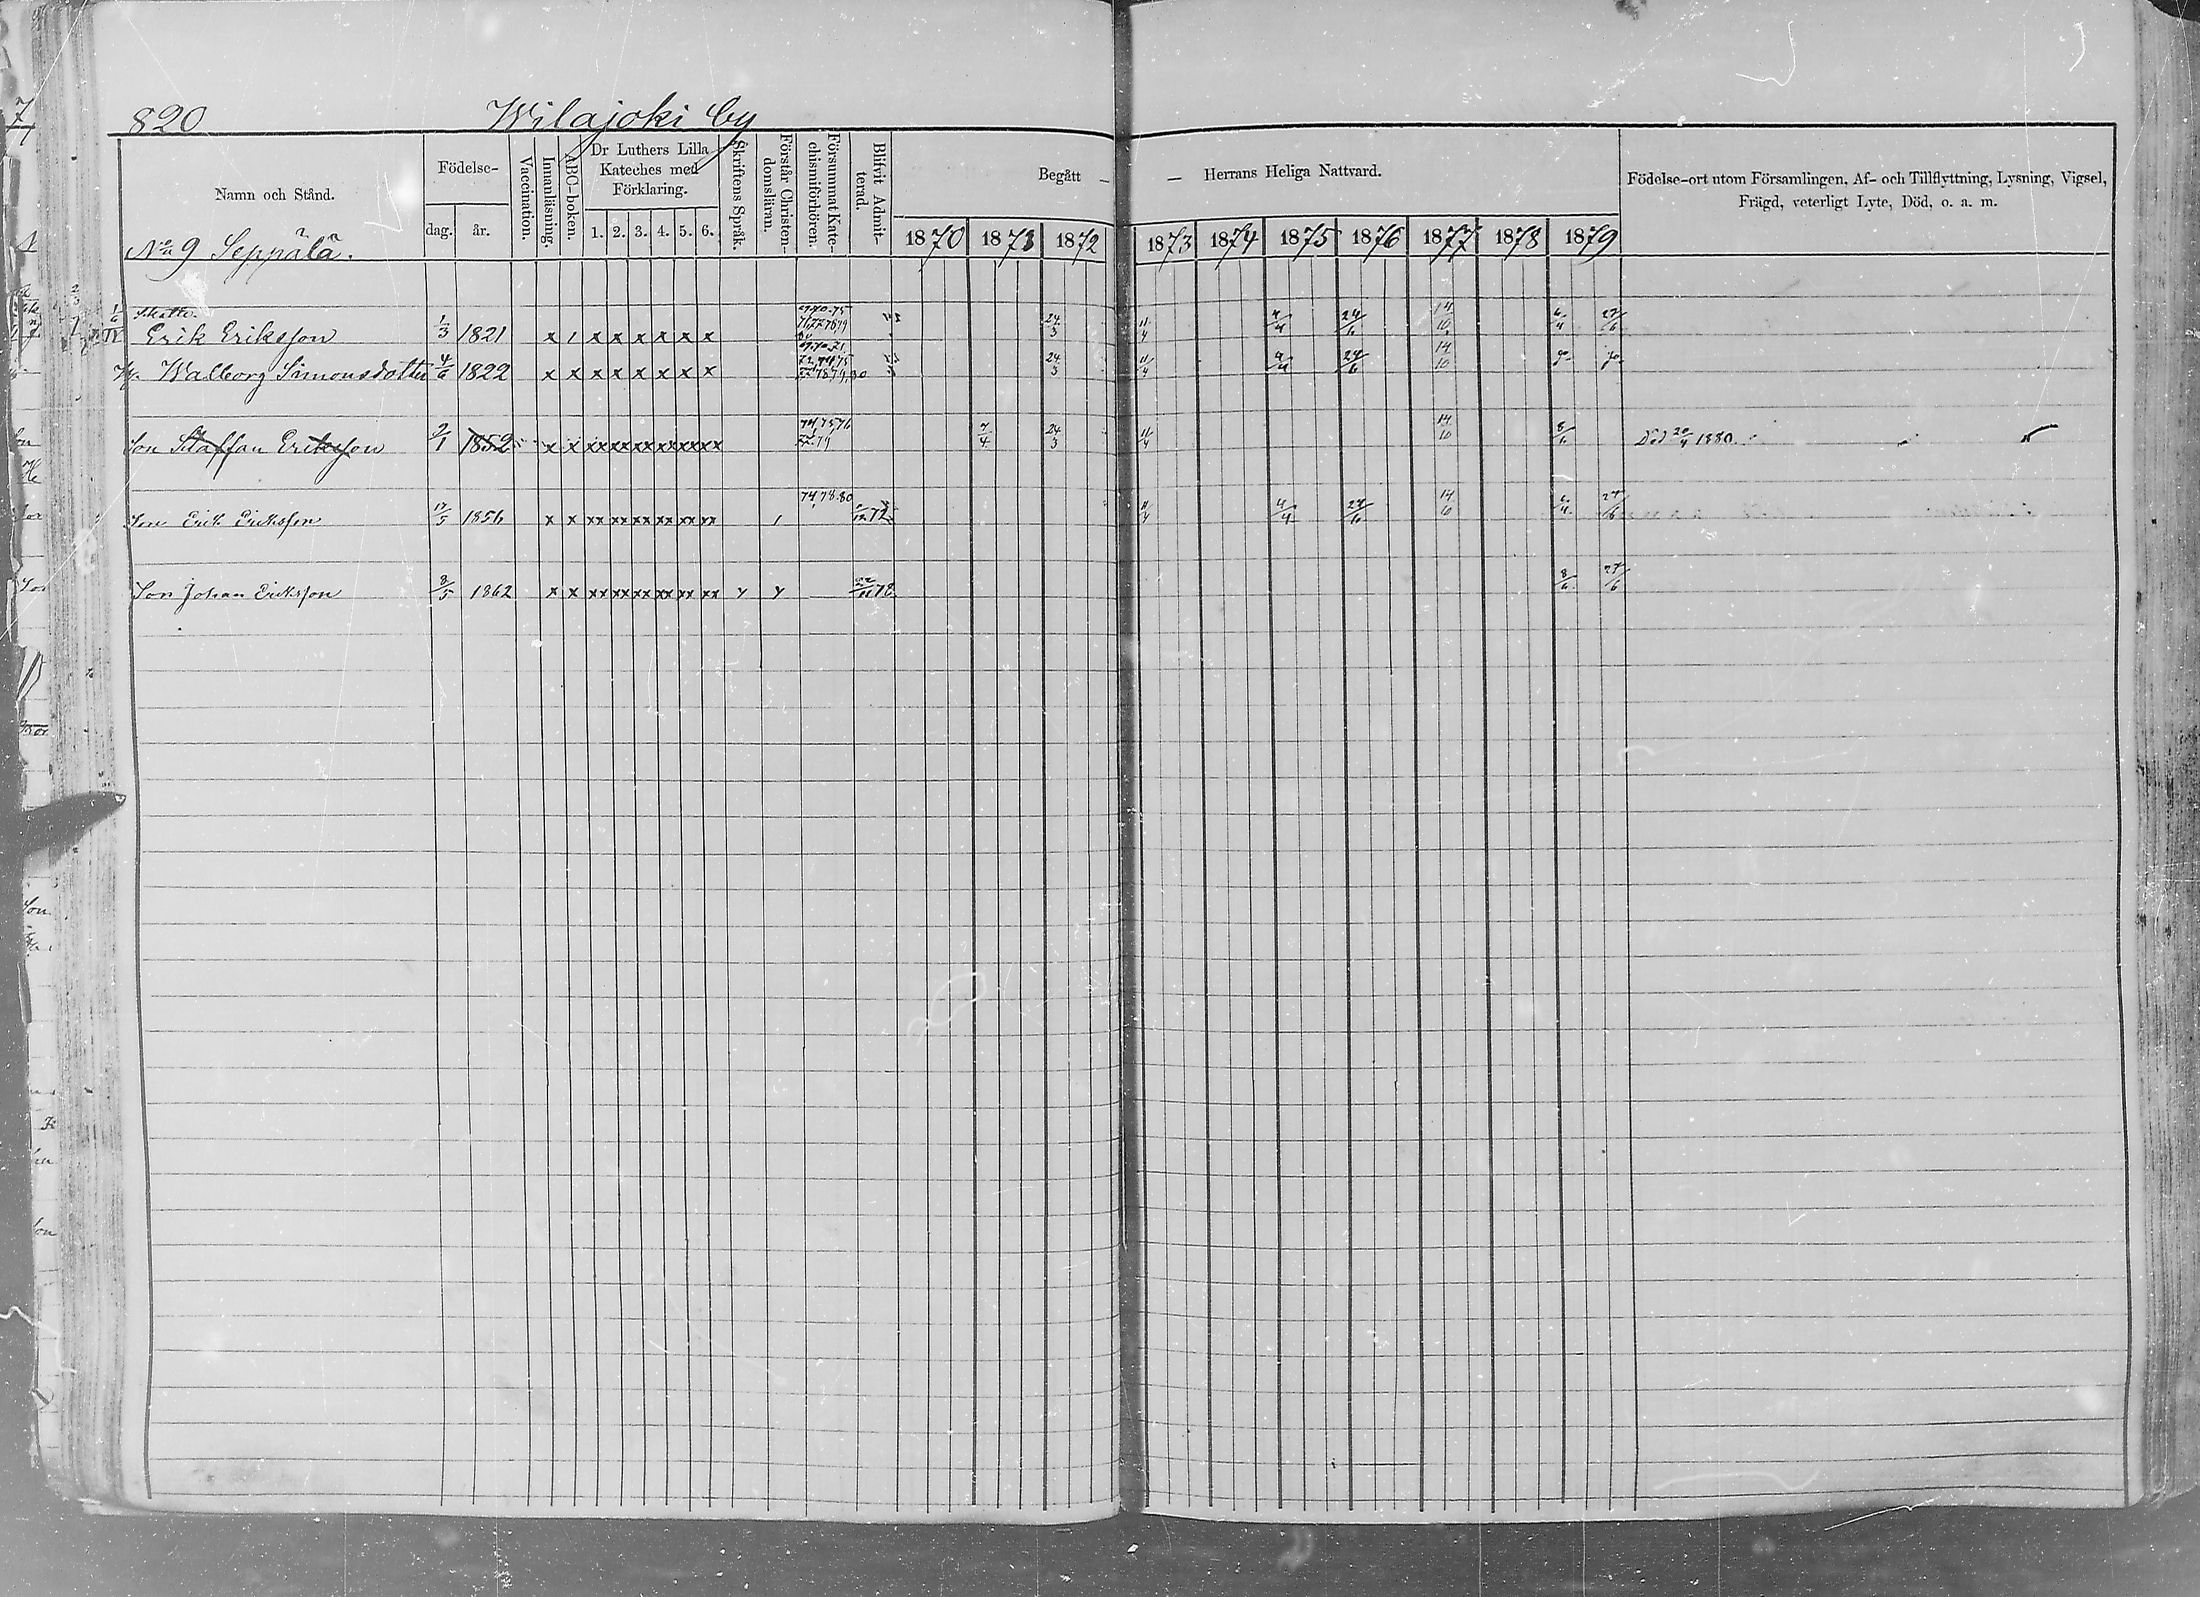 820 Wilajoki by
Namn och Stånd.
Födelse-
dag. år.
Vaccination.
Innanläsning.
ABC-boken.
Dr Luthers Lilla
Kateches med
Förklaring.
1. 2. 3. 4. 5. 6.
Skriftens Språk.
Förstår Christen-
domsläran.
Försummat Kate-
chismiförhören.
Blifvit Admit-
terad.
Begått — — Herrans Heliga Nattvard.
1870 1871 1872 1873 1874 1875 1876 1877 1878 1879
Födelse-ort utom Församlingen, Af- och Tillflyttning, Lysning, Vigsel,
Frägd, veterligt Lyte, Död, o. a. m.
No 9 Seppälä.
Skatteb.
Erik Eriksson 1/3 1821 x 1 x x x x x x 24/3 11/4 4/4 24/6 14/10 6/4 27/6
H. Walborg Simonsdotter 4/6 1822 x x x x x x x x 24/3 11/4 4/4 24/6 14/10
74,75,76
Son Staffan Eriksson 2/1 1852 x x xx xx xx xx xx xx 77.79 7/4 24/3 11/4 14/10 8/6 Död 20/4 1880.
Son Erik Eriksson 17/5 1856 x x xx xx xx xx xx xx 74,78.80 11/4 4/4 24/6 14/10 6/4 27/6
Son Johan Eriksson 8/5 1862 x x xx xx xx xx xx xx 22/11 78 8/6 27/6